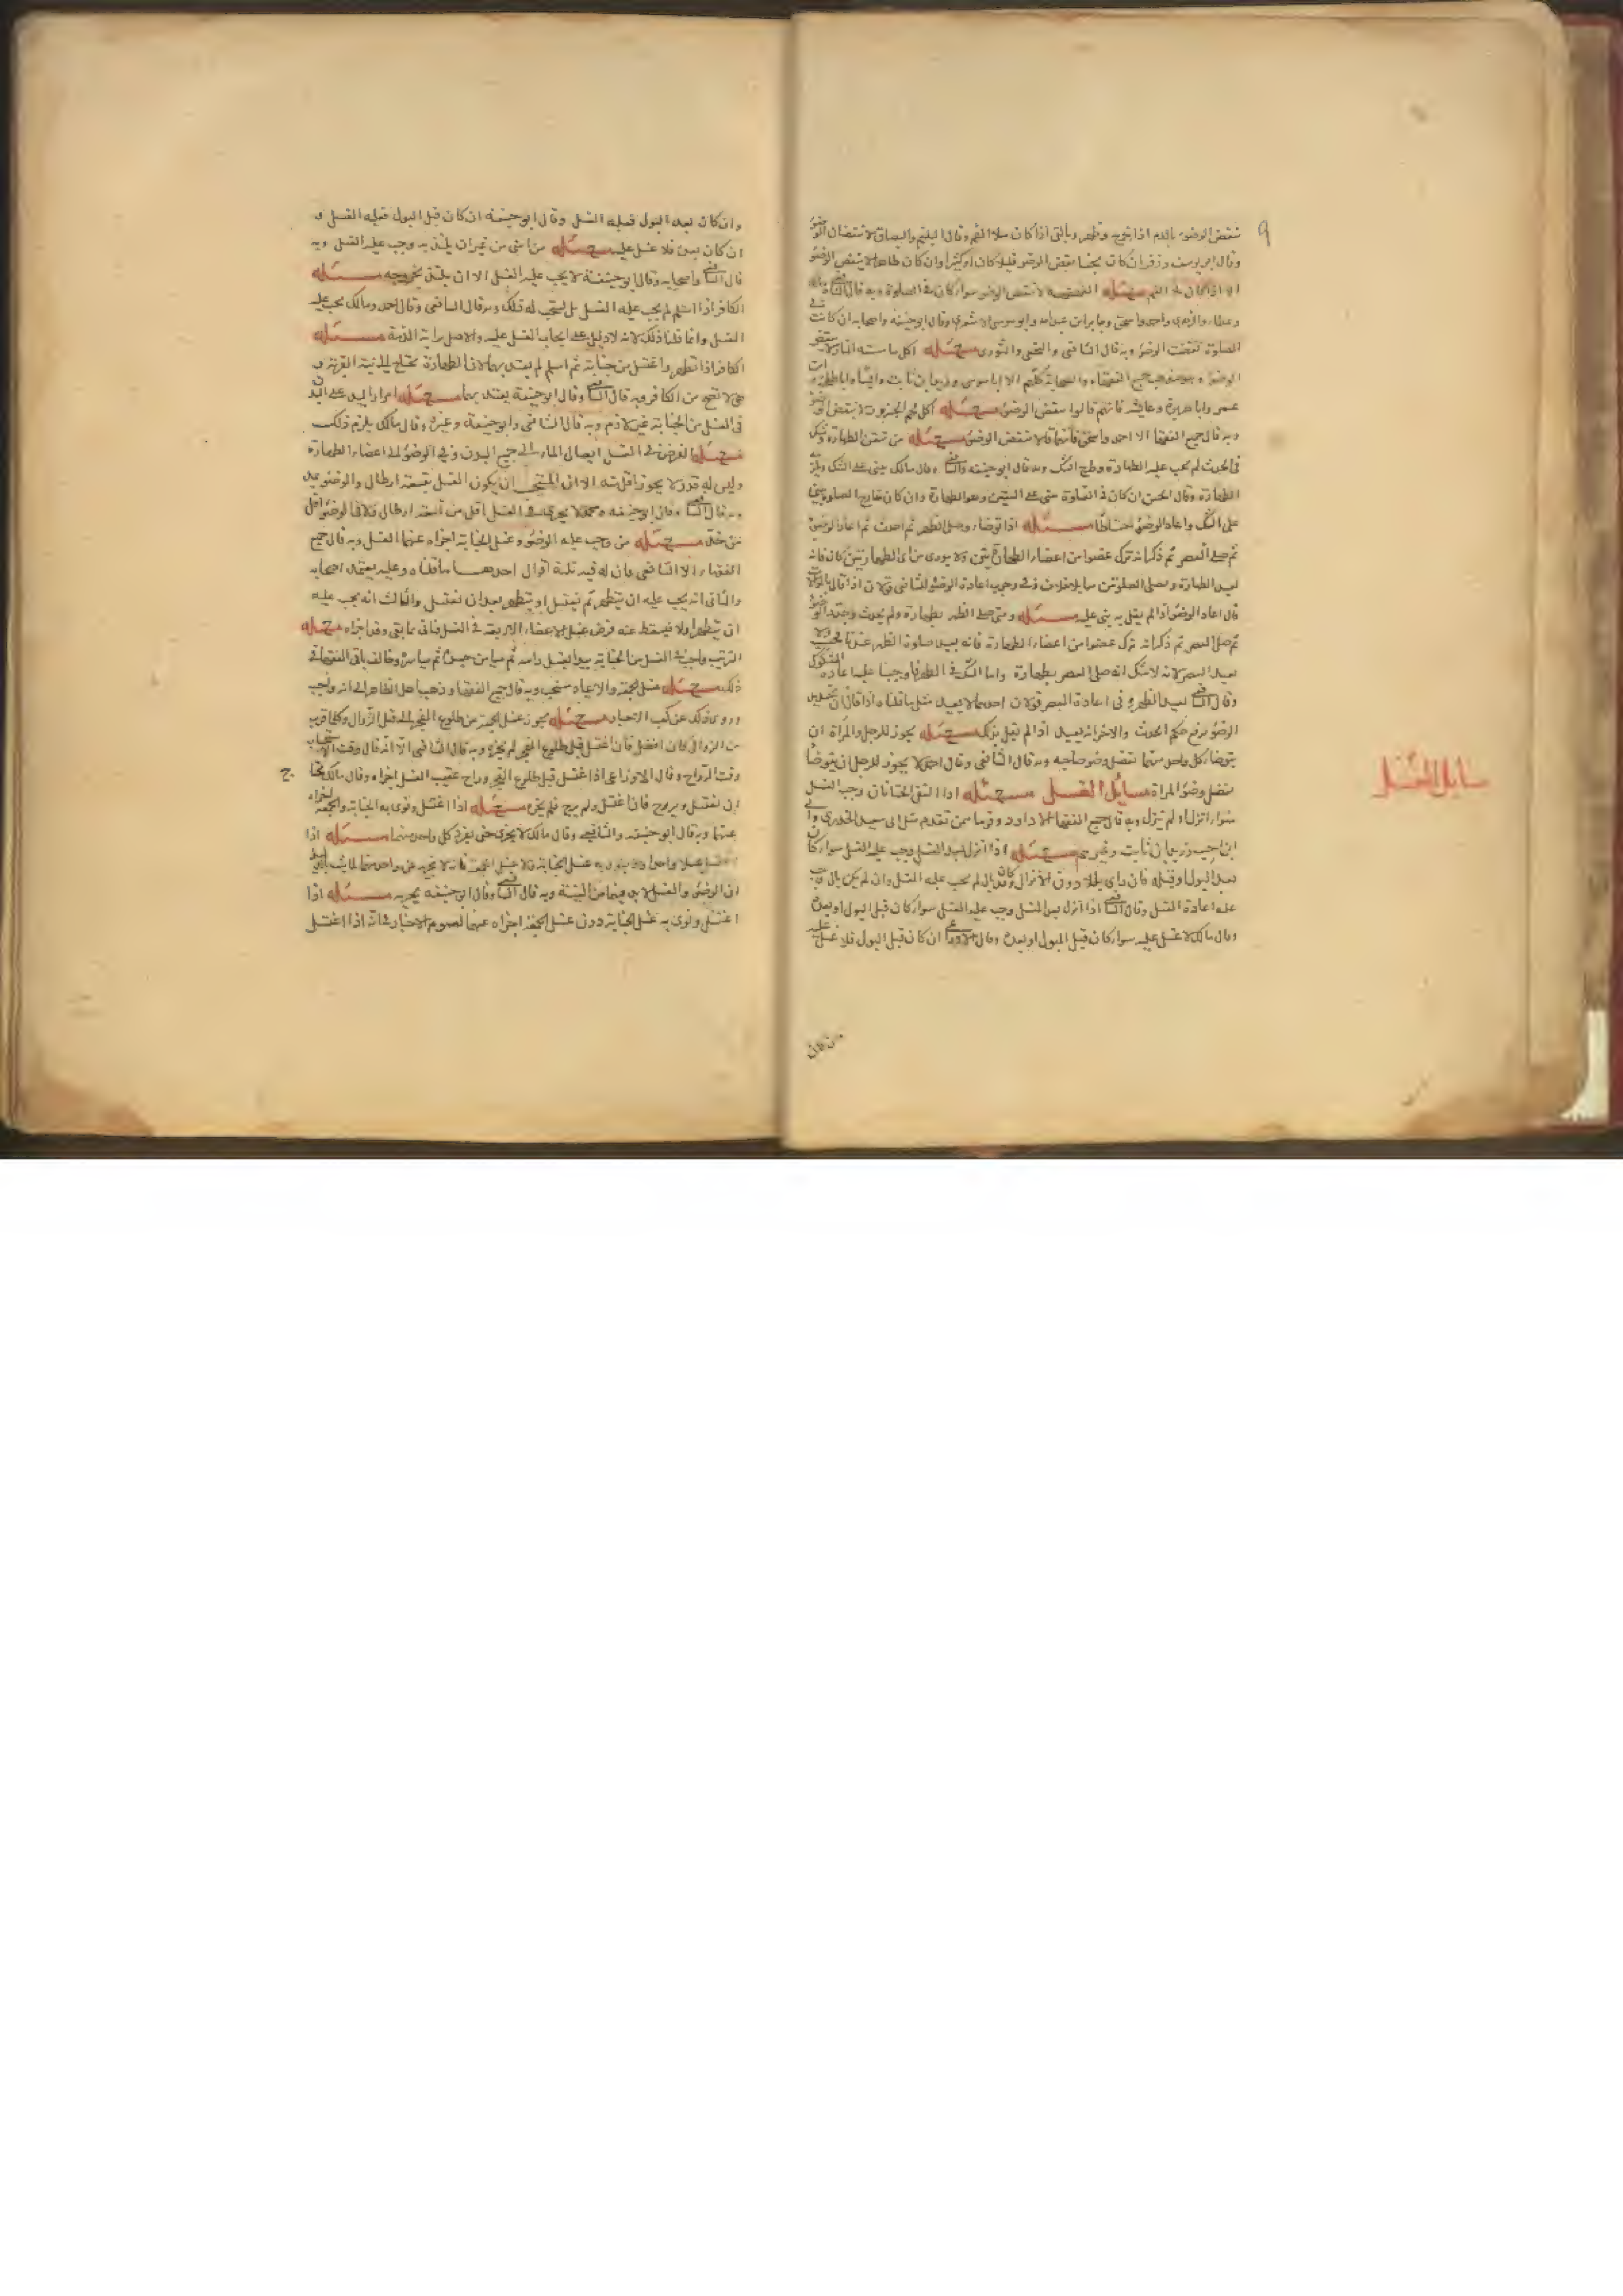 ٩
ينقض الوضوء بالدم اذا خرج وظهر وبالقي اذا كان ملاء الفم وقال البلغم والبصاق لا ينقضان الوضوء
وقال ابو يوسف وزفر ان كان نجسا ينقض الوضو قليلا كان او كثيرا وان كان طاهرا لا ينقض الوضوء
الا اذا كان ملء الفم مسئله القهقهة لا تنقض الوضو سواء كان في الصلوة وبه قال الشافعي
وعطاء والزهري واحمد واسحق وجابر بن عبدالله وابو موسى الاشعري وقال ابو حنيفه واصحابه ان كانت في
الصلوة نقضت الوضوء وبه قال الشافعي والنخعي والثوري مسئله اكل ما مسته النار لا ينقض
الوضوء وهو مذهب جميع الفقهاء والصحابة كلهم الا ابا موسى وزيد بن ثابت وانسا وابا طلحة وابن
عمر وابا هريرة وعايشه فانهم قالوا ينقض الوضوء مسئله اكل لحم الجزور لا ينقض الوضوء
وبه قال جميع الفقها الا احمد واسحق فانهما قالا ينقض الوضوء مسئله من تيقن الطهارة وشك
في الحدث لم يجب عليه الطهارة وطرح الشك وبه قال ابو حنيفه والشافعي وقال مالك يبني على الشك ويلزمه
الطهارة وقال الحسن ان كان في الصلوة بنى على اليقين وهو الطهارة وان كان خارج الصلوة بنى
على الشك واعاد الوضوء احتياطا مسئله اذا توضاء وصلى الظهر ثم احدث ثم اعاد الوضوء
ثم صلى العصر ثم ذكر انه ترك عضوا من اعضاء الطهارة ولا يدري من اي الطهارتين كان فانه
يعيد الطهارة ويصلى الصلوتين معا بلا خلاف وفي وجوب اعادة الوضوء للشافعي قولان اذا قال بالموالات
قال اعاد الوضوء واذا لم يقل به بنى عليه مسئله ومتى صلى الظهر بطهارة ولم يحدث وجدد الوضوء
ثم صلى العصر ثم ذكر انه ترك عضوا من اعضاء الطهارة فانه يعيد صلوة الظهر عندنا فحسب ولا
يعيد العصر لانه لا شك انه صلى العصر بطهارة وانما الشك في الظهر فاوجبنا عليه اعادة المشكوك
وقال الشافعي يعيد الظهر وفي اعادة العصر قولان احدهما لا يعيد مثل ما قلناه اذا قال ان تجديد
الوضوء يرفع حكم الحدث والاخر انه يعيد اذا لم يقل بذلك مسئله يجوز للرجل والمراة ان
يتوضا كل واحد منهما بفضل وضو صاحبه وبه قال الشافعي وقال احمد لا يجوز للرجل ان يتوضا
بفضل وضوء المراة مسائل الغسل مسئله اذا التقى الختانان وجب الغسل
سواء انزل او لم ينزل وبه قال جميع الفقها الا داود وقوما ممن تقدم مثل ابي سعيد الخدري وابي
ابن كعب وزيد بن ثابت وغيرهم مسئله اذا انزل بعد الغسل وجب عليه الغسل سواء كان
بعد البول او قبله فان راى بللا دون الانزال وكان قد بال لم يجب عليه الغسل وان لم يكن بال وجب
عليه اعادة الغسل وقال الشافعي اذا انزل بعد الغسل وجب عليه الغسل سواء كان قبل البول او بعده
وقال مالك لا غسل عليه سواء كان قبل البول او بعده وقال الاوزاعي ان كان قبل البول فلا غسل عليه
مسايل الغسل
وان كان بعد البول فعليه الغسل وقال ابو حنيفه ان كان قبل البول فعليه الغسل و
ان كان بعده فلا غسل عليه مسئله من امنى من غير ان يلتذ به وجب عليه الغسل وبه
قال الشافعي واصحابه وقال ابو حنيفة لا يجب عليه الغسل الا ان يلتذ بخروجه مسئله
الكافر اذا اسلم لم يجب عليه الغسل بل يستحب له ذلك وبه قال الشافعي وقال احمد ومالك يجب عليه
الغسل وانما قلنا ذلك لانه لا دليل على ايجاب الغسل عليه والاصل براية الذمة مسئله
الكافر اذا تطهر واغتسل من جنابة ثم اسلم لم يعتد بهما لان الطهارة تحتاج الى نية القربة و
هي لا تصح من الكافر وبه قال الشافعي وقال ابو حنيفة يعتد بهما مسئله امرار اليد على البدن
في الغسل من الجنابة غير لازم وبه قال الشافعي وابو حنيفة وغيره وقال مالك يلزم ذلك
مسئله الفرض في الغسل ايصال الماء الى جميع البدن وفي الوضوء الى اعضاء الطهارة
وليس له قدر لا يجوز اقل منه الا ان المستحب ان يكون الغسل بتسعة ارطال والوضوء بمد
وبه قال الشافعي وقال ابو حنيفه ومحمد لا يجزي في الغسل اقل من تسعة ارطال ولا في الوضوء اقل
من مد مسئله من وجب عليه الوضوء وغسل الجنابة اجزاه عنهما الغسل وبه قال جميع
الفقهاء الا الشافعي فان له فيه ثلثة اقوال احدهما ما قلناه وعليه يعتمد اصحابه
والثاني انه يجب عليه ان يتطهر ثم يغتسل او يتطهر بعد ان يغتسل والثالث انه يجب عليه
ان يتطهر اولا فيسقط عنه فرض غسل الاعضاء الاربعة في الغسل فاتى بما بقى وقد اجزاه مسئله
الترتيب واجب في الغسل من الجنابة يبدا بغسل راسه ثم ميامن جسده ثم مياسره وخالف باقي الفقها في
ذلك مسئله غسل الجمعة والاعياد مستحب وبه قال جميع الفقها وذهب اهل الظاهر الى انه واجب
وروى ذلك عن كعب الاحبار مسئله يجوز غسل الجمعة من طلوع الفجر الى قبل الزوال وكلما قرب
من الزوال كان افضل فان اغتسل قبل طلوع الفجر لم يجزه وبه قال الشافعي الا انه قال وقت الاستحباب
وقت الرواح وقال الاوزاعي اذا اغتسل قبل طلوع الفجر وراح عقيب الغسل اجزاه وقال مالك يحتاج
ان يغتسل ويروح فان اغتسل ولم يرح فلم يجزه مسئله اذا اغتسل ونوى به الجنابة والجمعة اجزاه
عنهما وبه قال ابو حنيفه والشافعي وقال مالك لا يجزي حتى يفرد كل واحد منهما مسئله اذا
اغتسل غسلا واحدا ولم ينو به غسل الجنابة ولا غسل الجمعة فانه لا يجزيه عن واحد منهما
ان الوضوء والغسل لا بد فيهما من النية وبه قال الشافعي وقال ابو حنيفه يجزيه مسئله اذا
اغتسل ونوى به غسل الجنابة دون غسل الجمعة اجزاه عنهما لعموم الاخبار في انه اذا اغتسل
وان كان